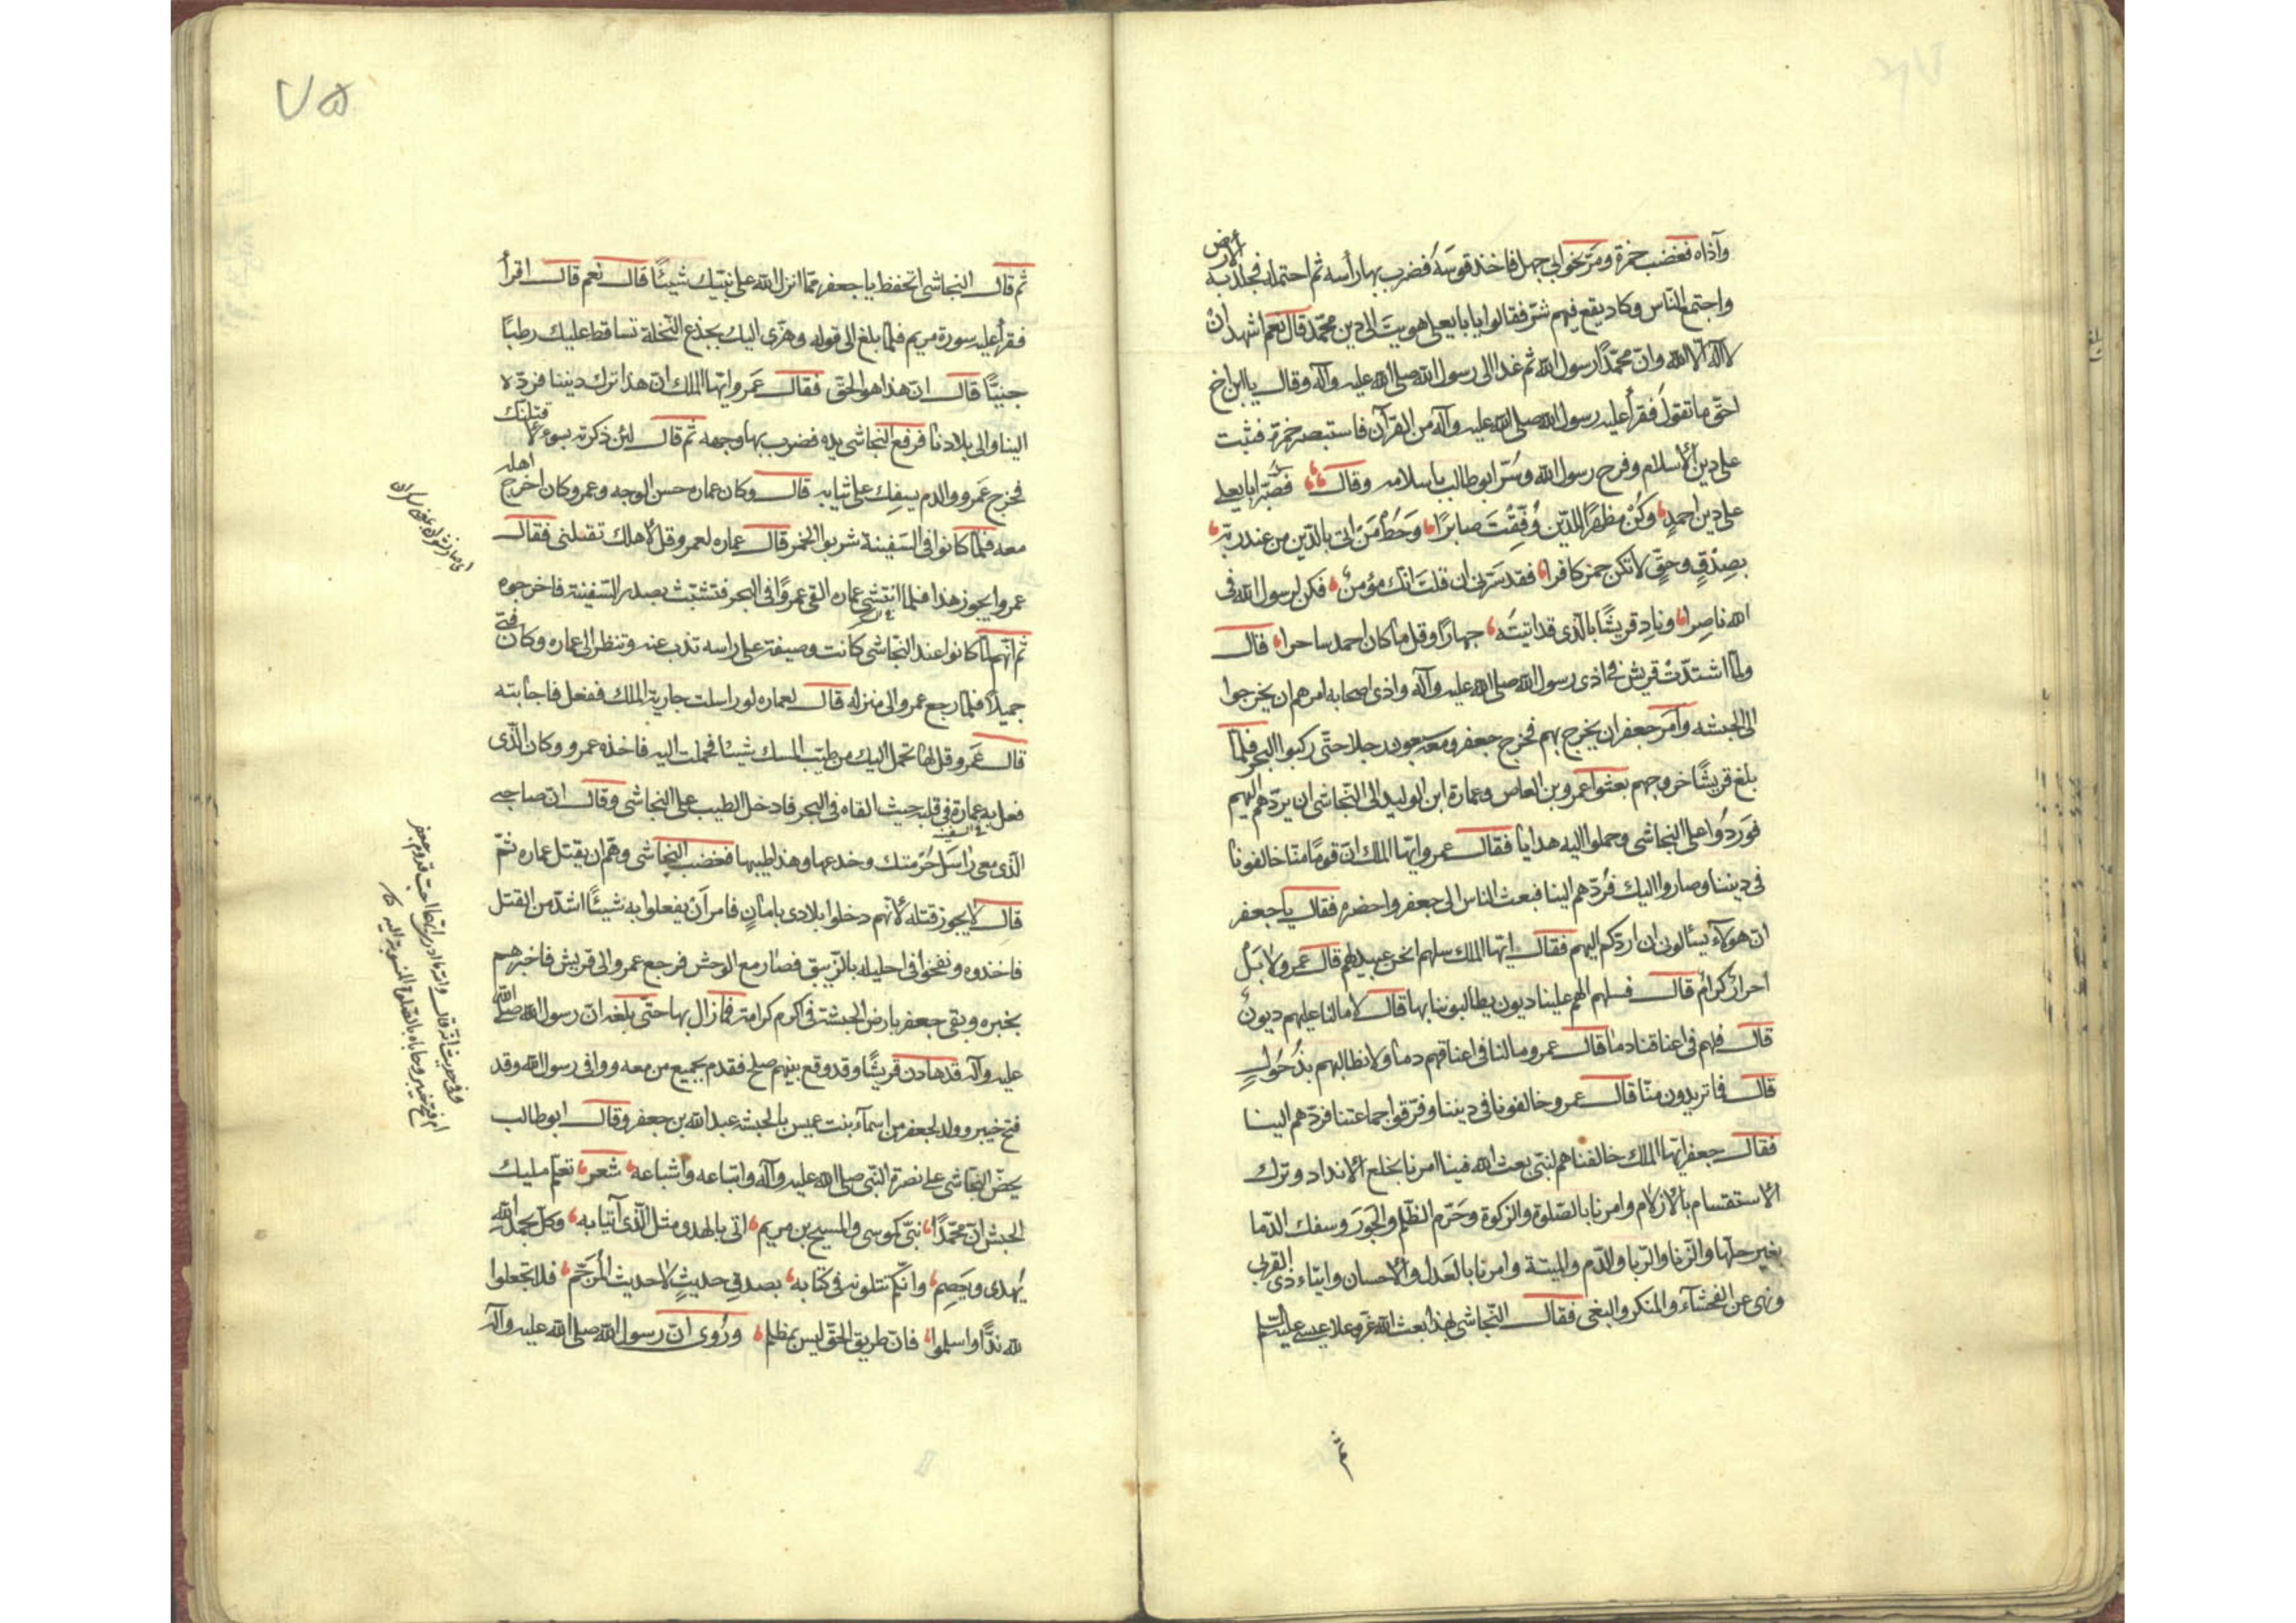 وآذاه فغضب حمزة ومرّ نحو ابي جهل فاخذ قوسه فضرب بها رأسه ثم احتمله فجلد به الأرض
واجتمع الناس وكاد يقع فيهم شرّ فقالوا يا با يعلى هويت الى دين محمّد قال نعم اشهد ان
لا اله الا الله وانّ محمّدًا رسول الله ثم غدا الى رسول الله صلى الله عليه وآله وقال يا ابن اخ
احقّ ما تقول فقرأ عليه رسول الله صلى الله عليه وآله من القرآن فاستبصر حمزة فثبت
على دين الأسلام وفرح رسول الله وسُرّ ابو طالب باسلامه وقال فصبرًا ابا يعلى
على دين احمدٍ وكُنْ مظهرًا للدّين وُفّقِتَ صابرًا وحُطْ مَنْ اتى بالدّين من عند ربّه
بصِدْقٍ وحقٍّ لا تكن حمز كافرا فقد سرّني ان قلتَ انّك مؤمنٌ فكن لرسول الله في
الله ناصرا ونادِ قريشًا بالّذى قد اتيتَه جهارًا وقل ما كان احمد ساحرا قال
ولمّا اشتدّت قريش في اذى رسول الله صلى الله عليه وآله واذى اصحابه امرهم ان يخرجوا
الى الحبشه وأمر جعفر ان يخرج بهم فخرج جعفر ومعه سبعون رجلا حتّى ركبوا البحر فلمّا
بلغ قريشًا خروجهم بعثوا عمرو بن العاص وعمارة ابن الوليد الى النّجاشى ان يردّهم اليهم
فوَردُوا على النجاشى وحملوا اليه هدايا فقال عمرو ايّها الملك انّ قومًا منّا خالفونا
في ديننا وصاروا اليك فرُدّهم الينا فبعث الناس الى جعفر واحضره فقال يا جعفر
انّ هولاء يسئالونى ان اردّكم اليهم فقال ايّها الملك سلهم انحن عبيد لهم قال عمرو لا بَلْ
احرارٌ كرامٌ قال فسلهم الهم علينا ديون يطالبوننا بها قال لا مالنا عليهم ديونٌ
قال فلهم في اعناقنا دمًا قال عمرو ومالنا في اعناقهم دما ولا نطالبهم بذُحُولٍ
قال فما تريدون منّا قال عمرو خالفونا في ديننا وفرّقوا جماعتنا فردّهم الينا
فقال جعفر ايّها الملك خالفناهم لنبىّ بعث الله فينا امرنا بخلع الأنداد وترك
الأستقسام بالأزلام وامرنا بالصّلوة والزكوة وحَرّم الظّلم والجَورَ وسفك الدّما
بغير حلّها والزّنا والرّبا والدّم والميتة وامرنا بالعَدل والأحسان وايتاء ذى القربى
ونهى عن الفحشآء والمنكر والبغى فقال النّجاشى بهذا بعث الله عزّ وعلا عيسى عليه السّلم
ثم قال
٧۵
ثم قال النجاشى اتحفظ يا جعفر ممّا انزل الله على نبيّك شيئًا قال نعم قال اقرأ
فقرأ عليه سورة مريم فلمّا بلغ الى قوله وهزّى اليك بجذع النّخلة تساقط عليك رطبًا
جنيّا قال انّ هذا هو الحقّ فقال عَمرو ايّها الملك انّ هذا ترك ديننا فردّه
الينا والى بلادنا فرفع النجاشى يده فضرب بها وجهه ثم قال لئن ذكرته بسوء لأقتلنّك
فخرج عمرو والدم يسفك على ثيابه قال وكان عماره حسن الوجه وعمرو كان اخرج اهله
معه فلمّا كانوا في السّفينة شربوا الخمر قال عماره لعمرو قل لأهلك تقبلنى فقال
عمرو ايجوز هذا فلمّا انتشى عماره القى عمروًا في البحر فتشبّث بصدر السّفينة فاخرجوه
ثم انّهم لمّا كانوا عند النّجاشى كانت وصيفة على راسه تذب عنه وتنظر الى عماره وكان فتى
جميلاً فلمّا رجع عمرو الى منزله قال لعماره لو راسلت جارية الملك ففعل فاجابته
قال عَمرو قل لها تحمل اليك من طيّب المسك شيئا فحملت اليه فاخذه عمرو وكان الّذى
فعل به عمارة في قلبه حيث القاه في البحر فادخل الطيب على النجاشى وقال انّ صاحبى
الّذى معى راسَل حُرمتك وخدعها وهذا طيبها فغضب النجاشى وهمّ ان يقتل عماره ثمّ
قال لا يجوز قتله لأنّهم دخلوا بلادى بامانٍ فامر أن يفعلوا به شيئًا اشدّ من القتل
فاخذوه ونفخوا في احليله بالزّيبق فصار مع الوحش فرجع عمرو الى قريش فاخبرهم
بخبره وبقى جعفر بارض الحبشة في اكرم كرامة فما زال بها حتّى بلغه انّ رسول الله صلّى الله
عليه وآله قد هادن قريشًا وقد وقع بينهم صلح فقدم بجميع من معه ووافى رسول الله وقد
فتح خيبر وولد لجعفر من اسمآء بنت عميس بالحبشه عبد الله بن جعفر وقال ابو طالب
يحضّ النجاشى على نصرة النّبى صلى الله عليه وآله واتباعه واشباعه شعر تعلّم مليك
الحبش انّ محمّدًا نبىّ كموسى والمسيح بن مريم اتى بالهدى مثل الّذى آتيا به وكلّ بحمد الله
يُهدى ويَعصِم وانّكم تتلونه في كتابه بصدق حديثٍ لا حديث المُرجّم فلا تجعلوا
لله ندًّا واسلموا فانّ طريق الحقّ ليس بمظلم ورُوى انّ رسول الله صلى الله عليه وآله